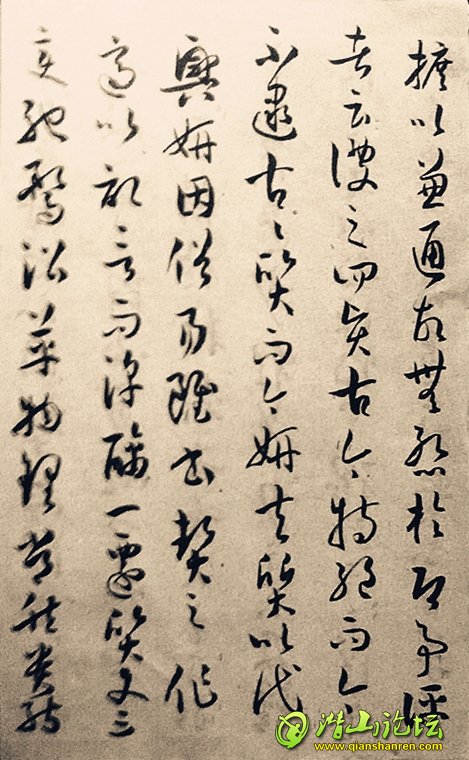 摭以兼通故無慙於即事評
者云彼之四賢古今特絕而今
不逮古〻質而今妍夫質以代
興妍因俗易雖書契之作
適以記言而淳醨一遷質文三
變馳騖沿革物理常然貴能
潜山论坛
www.qianshanren.com